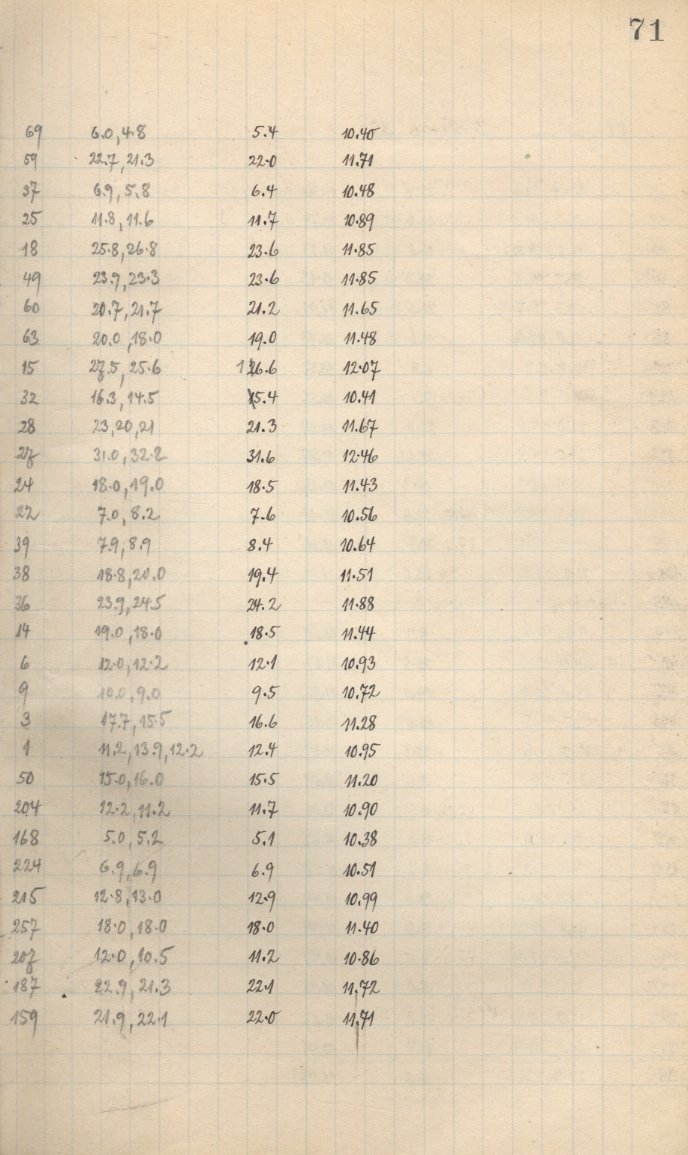 71
69 6.0, 4.8 5.4 10.40
59 22.7, 21.3 22.0 11.71
37 6.9, 5.8 6.4 10.48
25 11.8, 11.6 11.7 10.89
18 25.8, 26.8 23.6 11.85
49 23.9, 23.3 23.6 11.85
60 20.7, 21.7 21.2 11.65
63 20.0, 18.0 19.0 11.48
15 27.5, 25.6 26.6 12.07
32 16.3, 14.5 15.4 10.41
28 23, 20, 21 21.3 11.67
27 31.0, 32.2 31.6 12.46
24 18.0, 19.0 18.5 11.43
22 7.0, 8.2 7.6 10.56
39 7.9, 8.9 8.4 10.64
38 18.8, 20.0 19.4 11.51
36 23.9, 24.5 24.2 11.88
14 19.0, 18.0 18.5 11.44
6 12.0, 12.2 12.1 10.93
9 10.0, 9.0 9.5 10.72
3 17.7, 15.5 16.6 11.28
1 11.2, 13.9, 12.2 12.4 10.95
50 15.0, 16.0 15.5 11.20
204 12.2, 11.2 11.7 10.90
168 5.0, 5.2 5.1 10.38
224 6.9, 6.9 6.9 10.51
215 12.8, 13.0 12.9 10.99
257 18.0, 18.0 18.0 11.40
207 12.0, 10.5 11.2 10.86
187 22.9, 21.3 22.1 11.72
159 21.9, 22.1 22.0 11.71